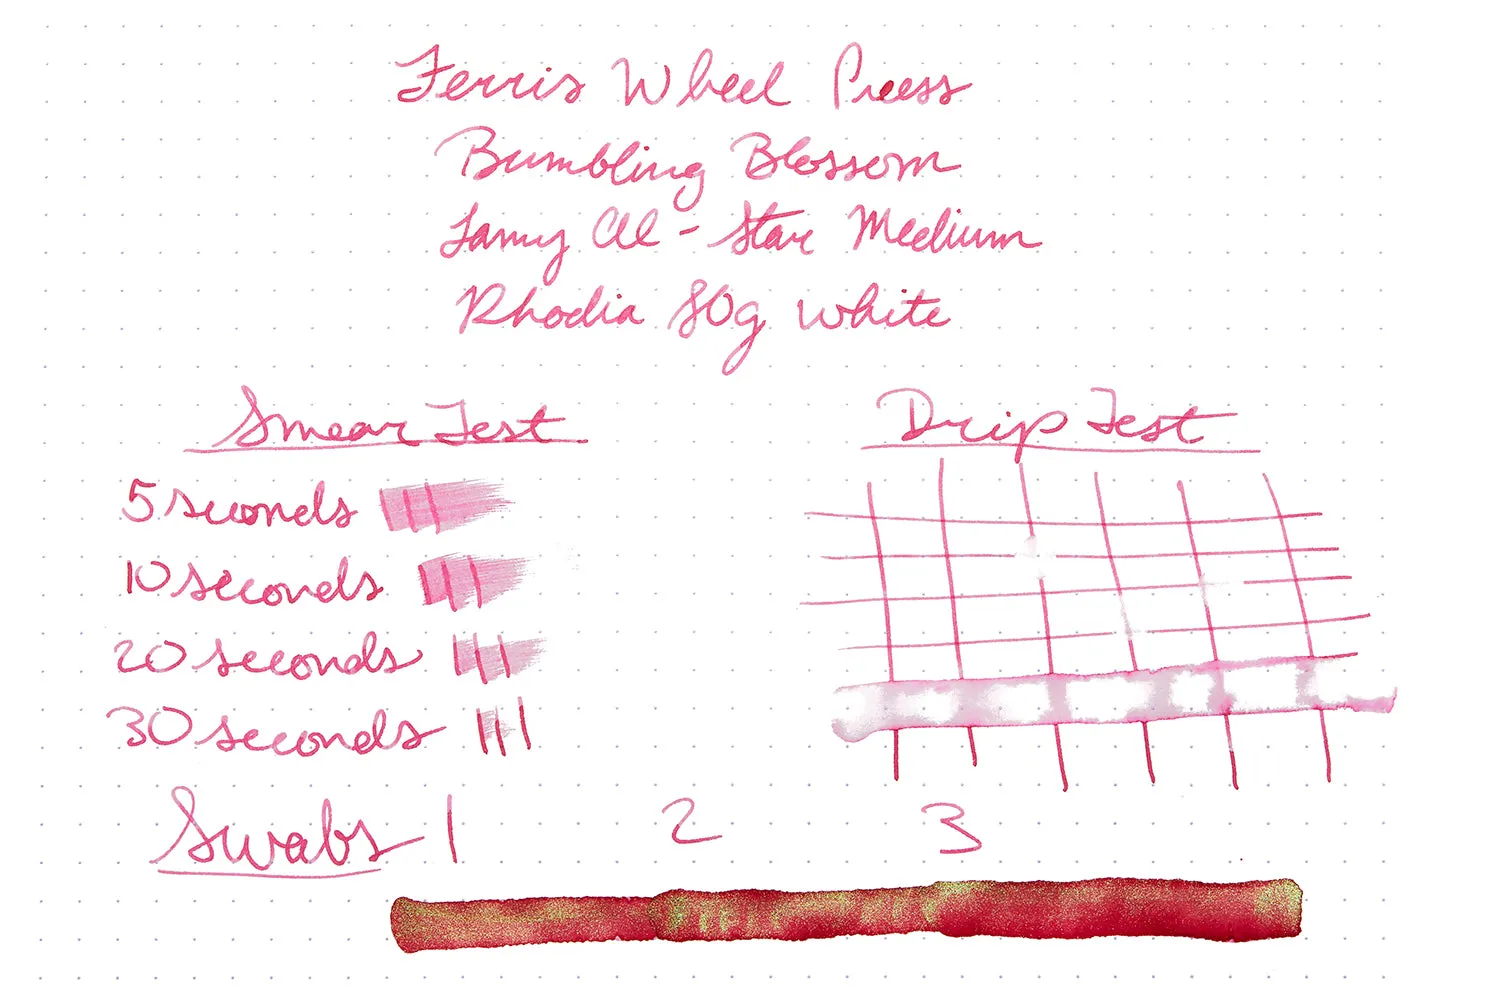 Ferris Wheel Press
Bumbling Blossom
Lamy Al-Star Medium
Rhodia 80g White
Smear Test
5 seconds
10 seconds
20 seconds
30 seconds
Drip Test
Swabs 1 2 3